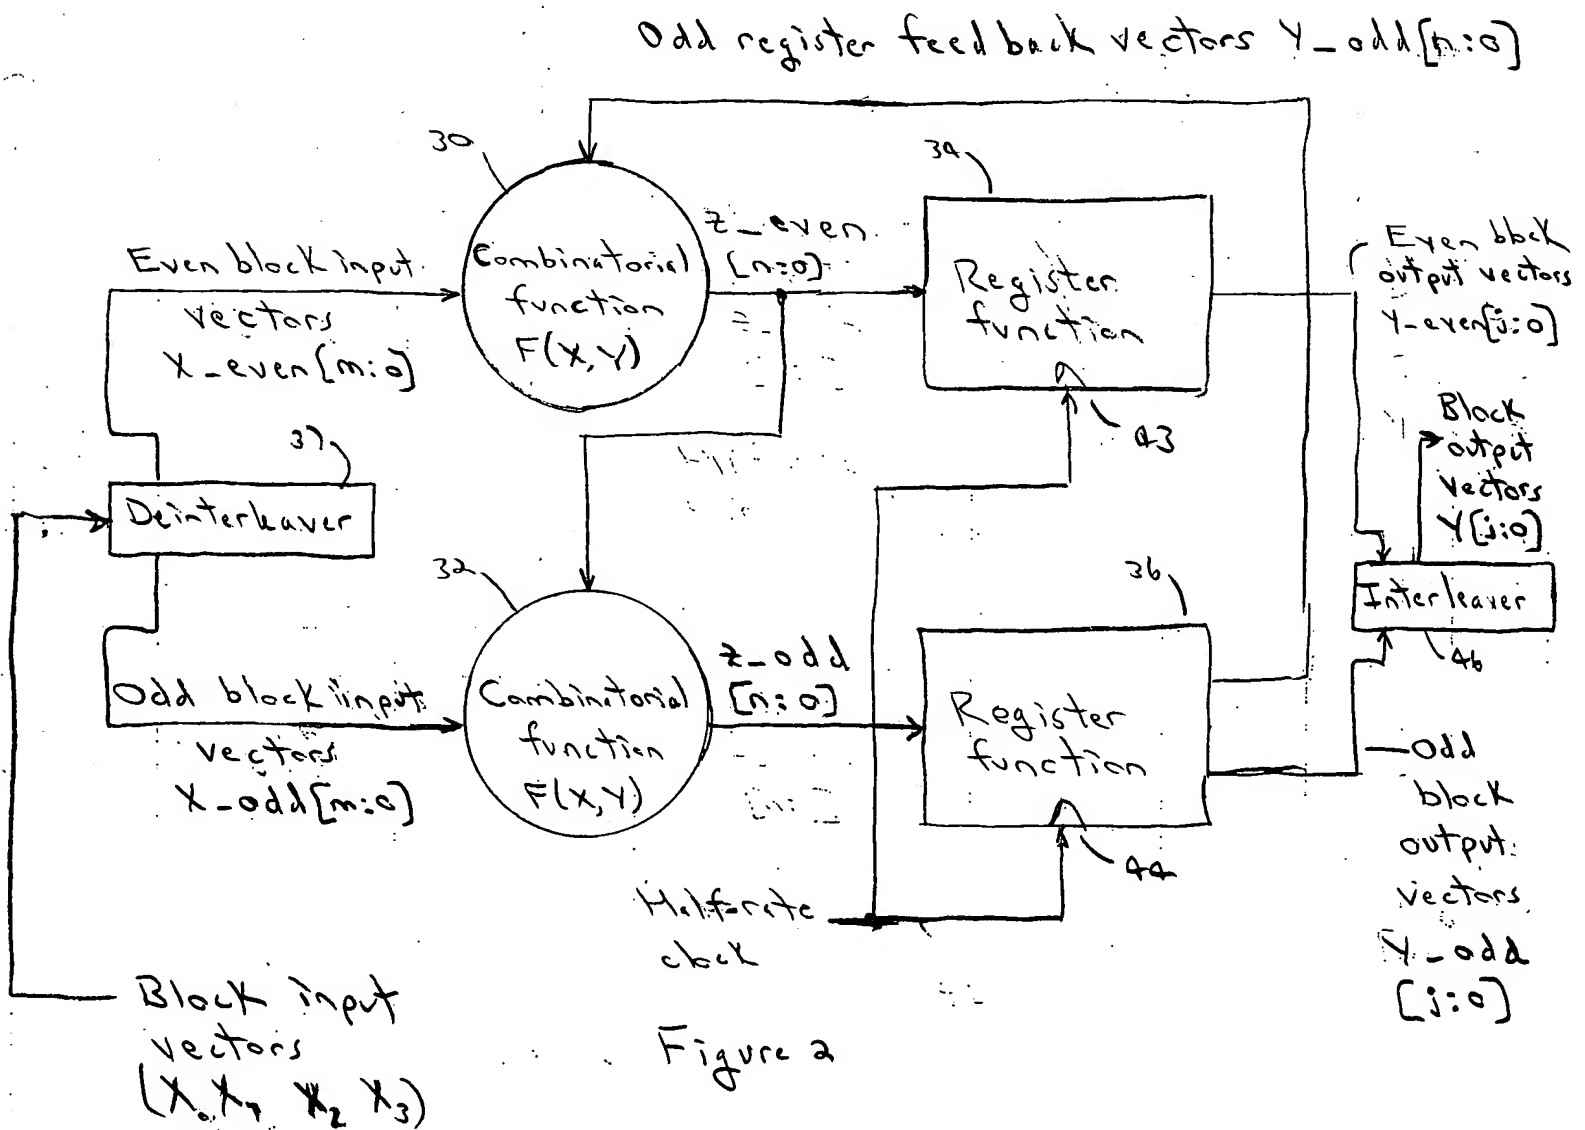 Odd register feedback vectors Y_odd[n:0]
30
34
Even block input
vectors
X_even[m:0]
Combinatorial
function
F(X,Y)
z_even
[n:0]
Register
function
43
Even block
output vectors
Y_even[j:0]
Block
output
vectors
Y[j:0]
37
Deinterleaver
32
36
Interleaver
46
Odd block input
vectors
X_odd[m:0]
Combinatorial
function
F(X,Y)
z_odd
[n:0]
Register
function
44
Odd
block
output
vectors
Y_odd
[j:0]
Half-rate
clock
Block input
vectors
(X₀ X₁ X₂ X₃)
Figure 2